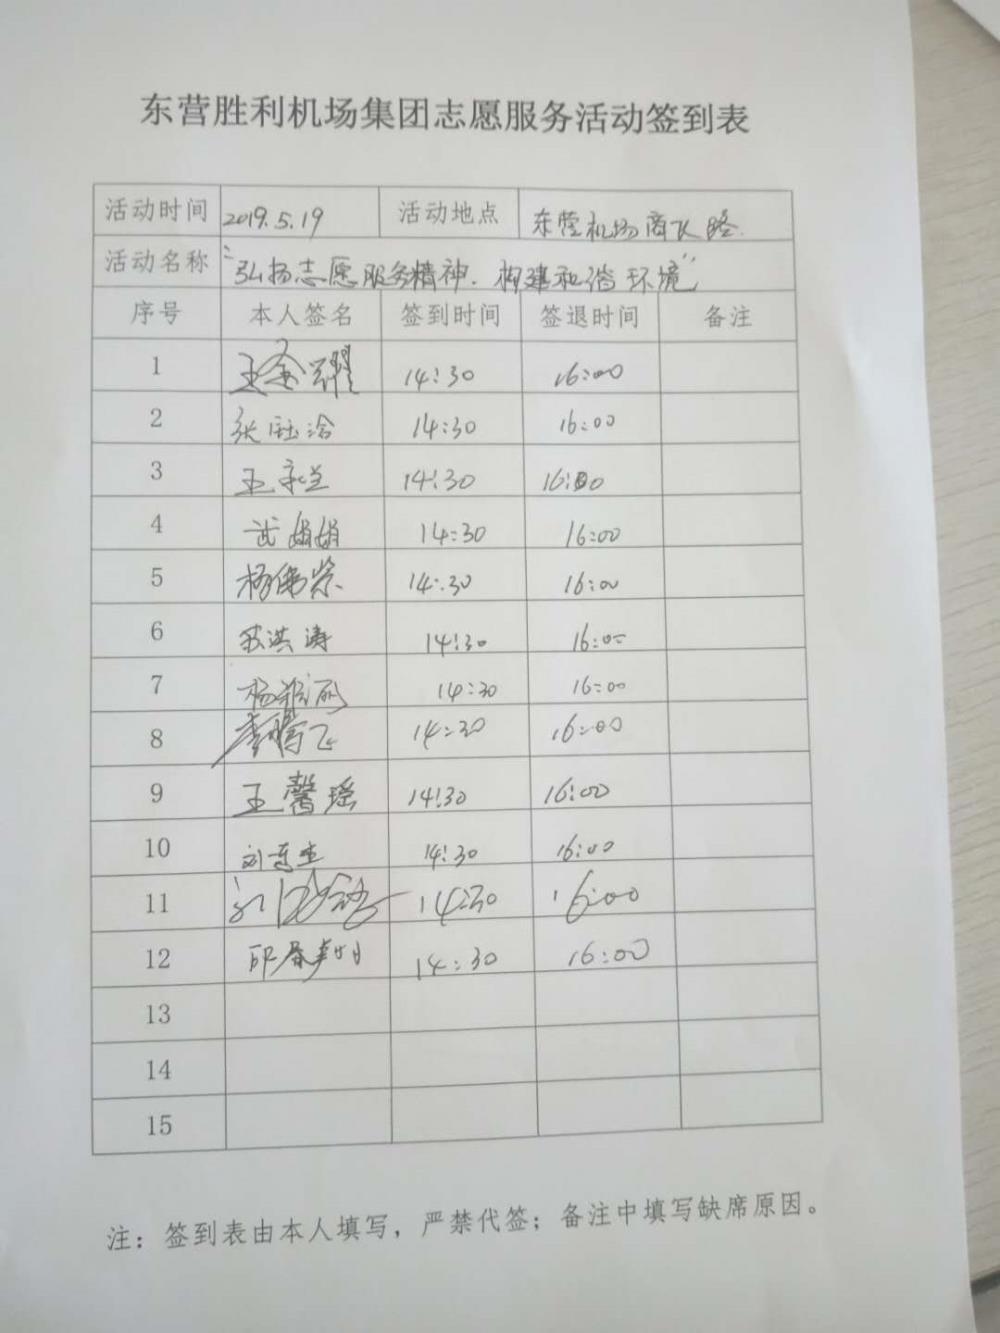 东营胜利机场集团志愿服务活动签到表
活动时间 2019.5.19 活动地点 东营机场商飞路
活动名称 "弘扬志愿服务精神.构建和谐环境"
序号 本人签名 签到时间 签退时间 备注
1 王金耀 14:30 16:00
2 张钰洽 14:30 16:00
3 王 14:30 16:00
4 武娟娟 14:30 16:00
5 杨伟崇 14:30 16:00
6 洪涛 14:30 16:00
7 杨丽 14:30 16:00
8 李鹏飞 14:30 16:00
9 王馨瑶 14:30 16:00
10 刘 14:30 16:00
11 14:30 16:00
12 14:30 16:00
13
14
15
注：签到表由本人填写，严禁代签；备注中填写缺席原因。